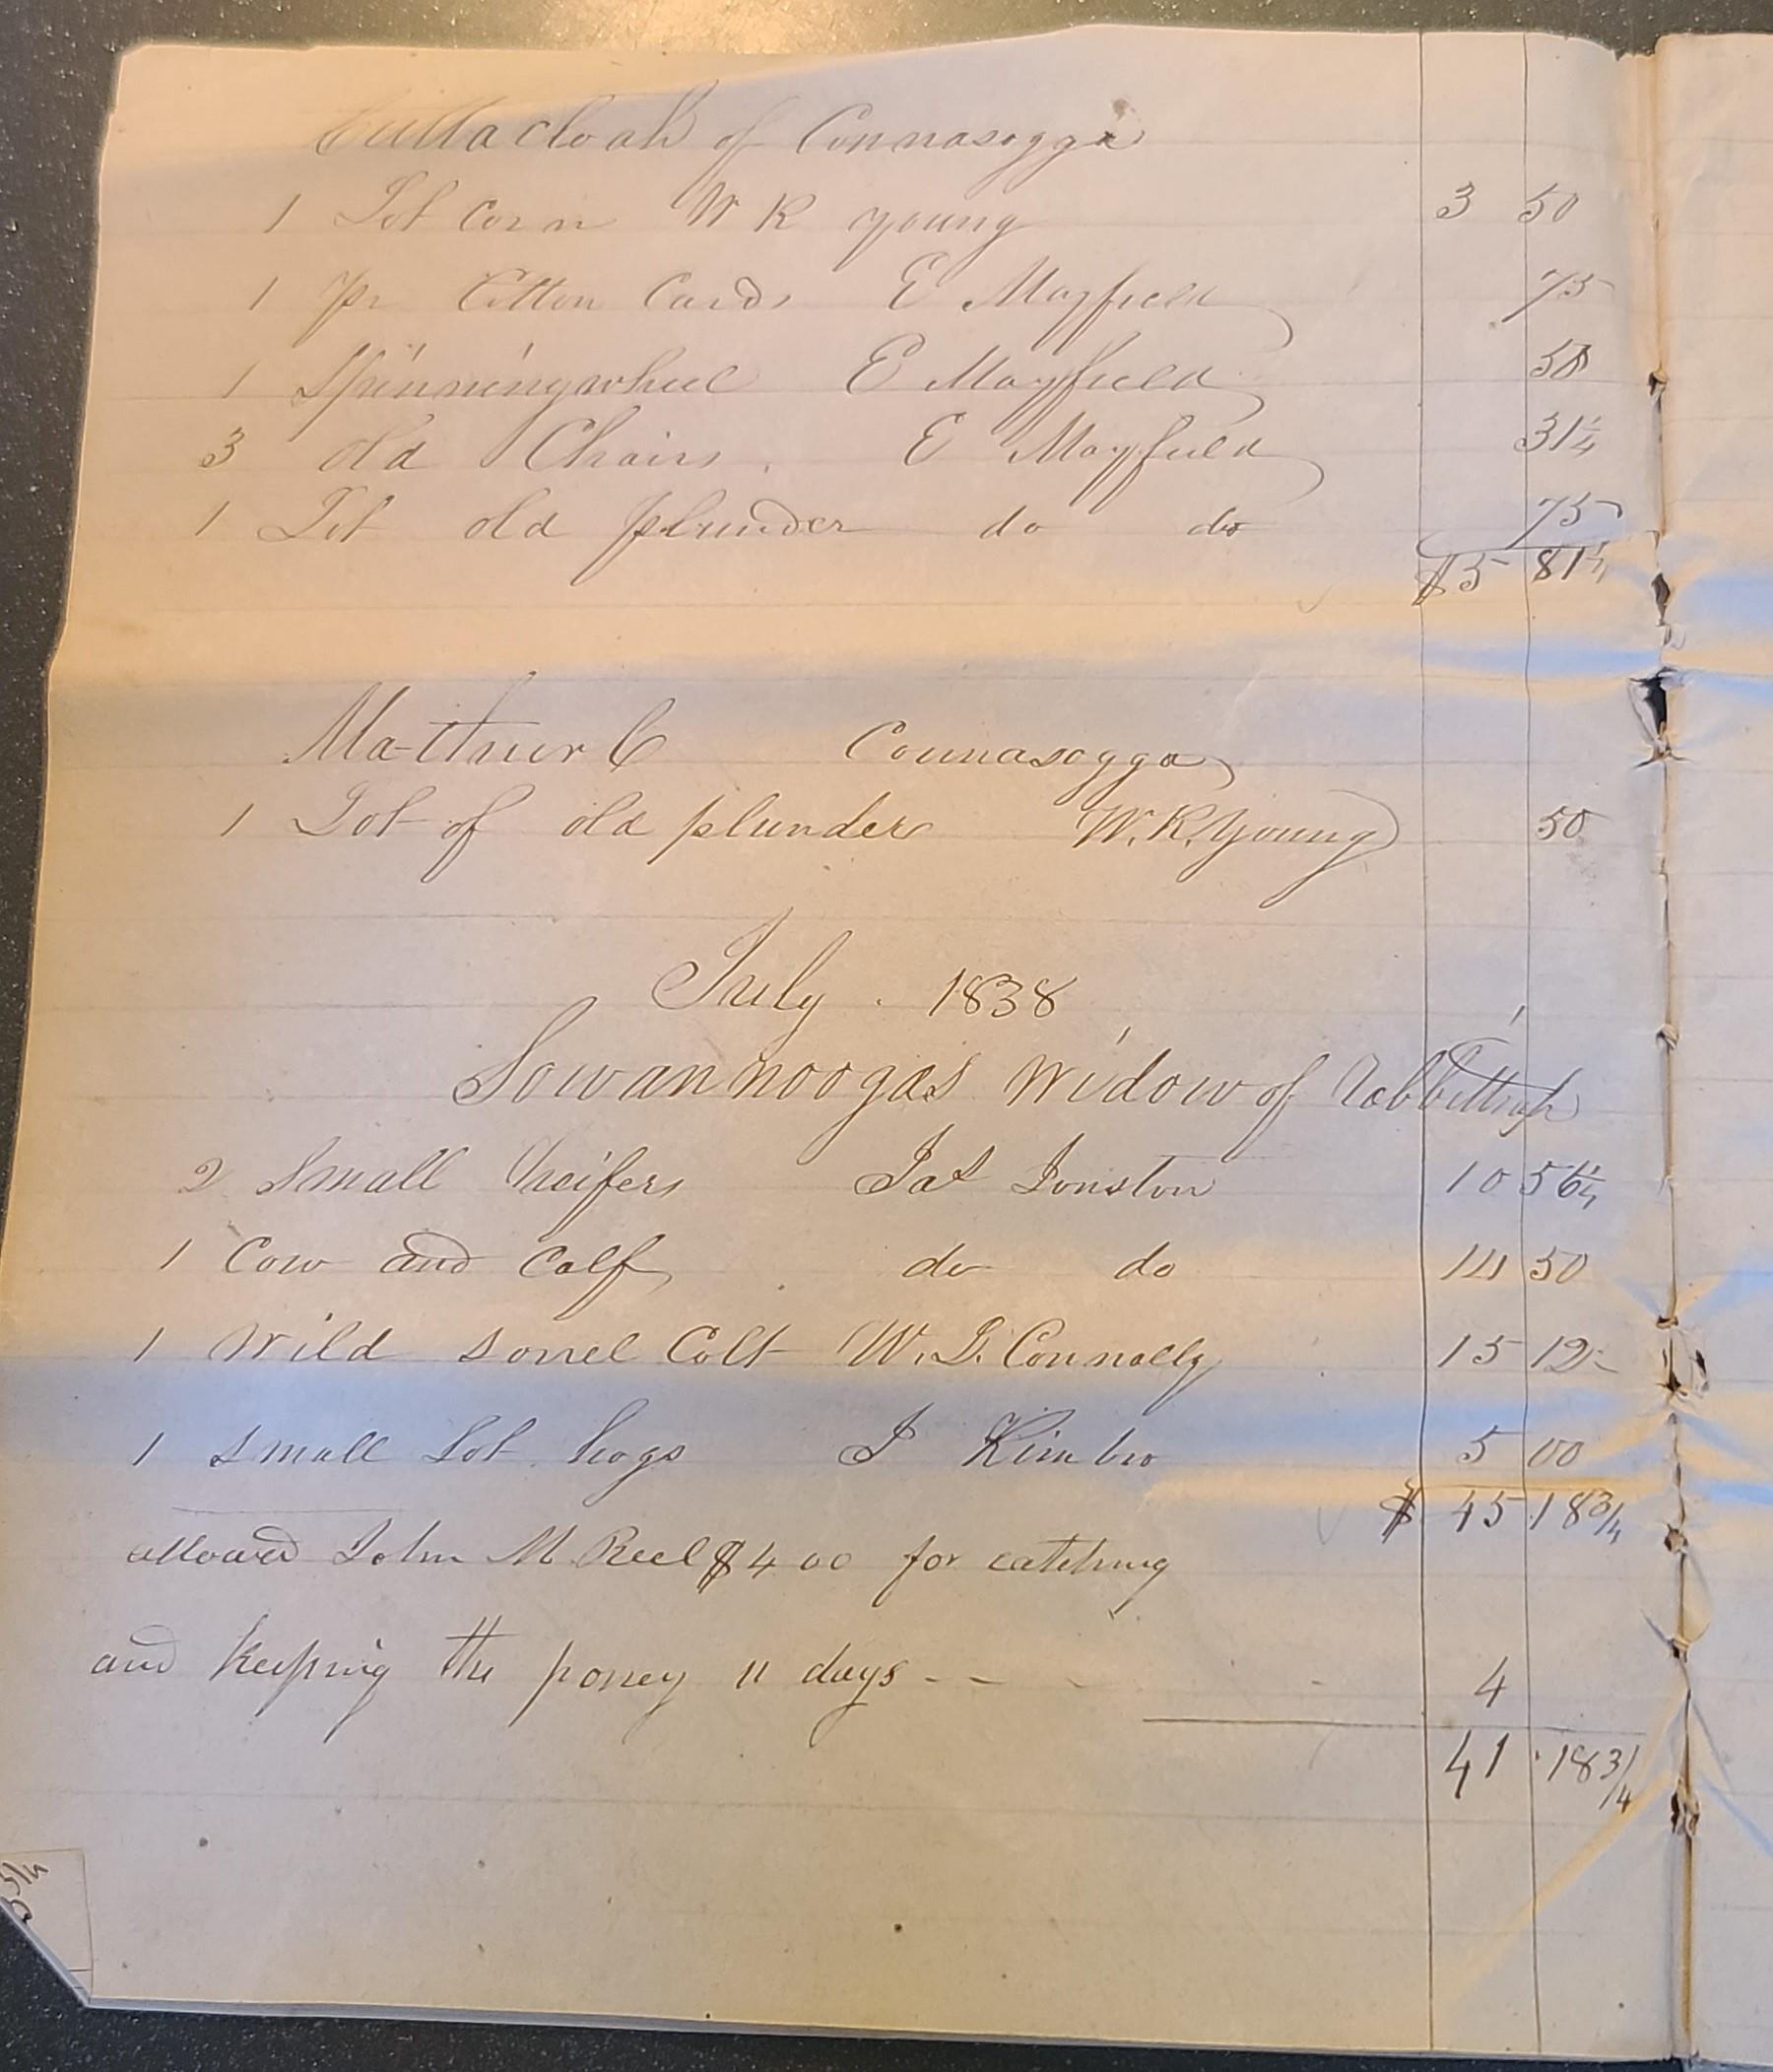 Cultacloah of Connasogga
1 Lot Corn W K Young 3 50
1 pr Cotton Cards E Mayfield 75
1 Spinningwheel E Mayfield 50
3 old Chairs E Mayfield 31 1/4
1 Lot old plunder do do 75
$5 81 1/4
Connasogga
1 Lot of old plunder W. K. Young 50
July 1838
Sowannoogas Widow of
2 Small heifers Jas Jonston 10 56 1/4
1 Cow and Calf do do 14 50
1 Wild sorrel Colt W. D. Connally 15 12
1 small Lot hogs J Kimbro 5 00
$ 45 18 3/4
allowed John M Reel $4 00 for catching
and keeping the poney 11 days - - 4
41 18 3/4